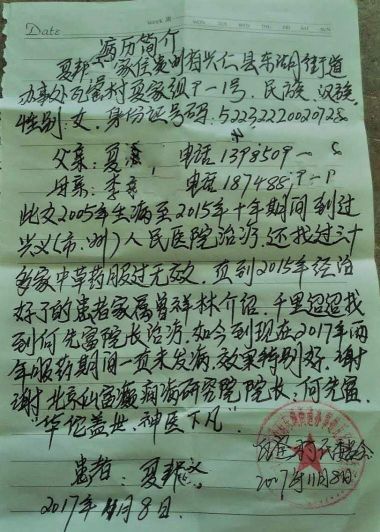 Date
病历简介
夏邦 家住贵州省兴仁县东湖街道
办事处瓦窑村夏家组 1号，民族：汉族，
性别：女，身份证号码：52232220020928
父亲：夏 ，电话1398509
母亲：李 电话187488
此女2005年生病至2015年十年期间到过
兴义(市、州)人民医院治疗，还找过三十
多家中草药服过无效，直到2015年经治
好了的患者家属曾祥林介绍，千里迢迢找
到何先富院长治疗，如今到现在2017年两
年服药期间一直未发病，效果特别好，谢
谢北京仙富癫痫病研究院院长：何先富，
“华佗盖世，神医下凡”
患者：夏邦
2017年11月8日
2017年11月8日